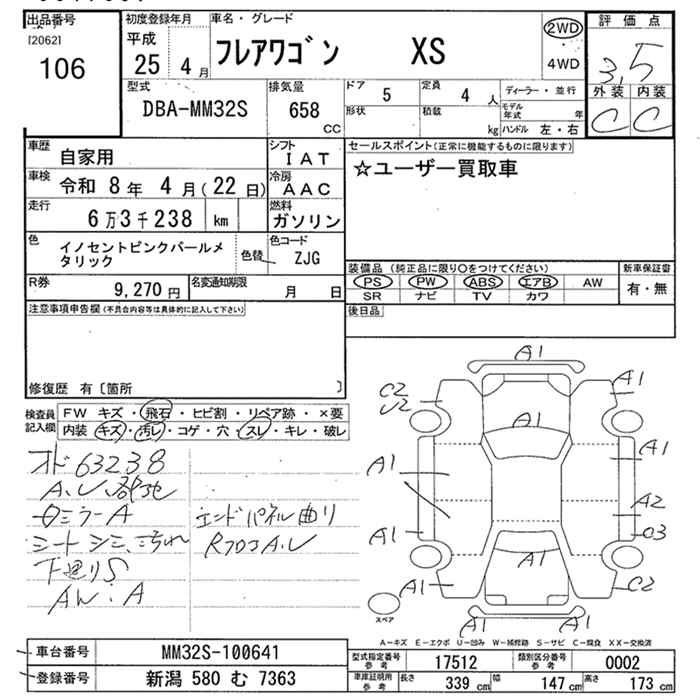 出品番号
[2062]
106
初度登録年月
平成
25 4 月
車名・グレード
フレアワゴン XS
2WD
4WD
評価点
3.5
外装 内装
C C
型式
DBA-MM32S
排気量
658
CC
ドア
5
定員
4 人
形状
積載
kg
ディーラー・並行
モデル年式 年
ハンドル 左・右
車歴
自家用
シフト
IAT
車検
令和 8年 4月(22日)
冷房
AAC
走行
6万3千238 km
燃料
ガソリン
色
イノセントピンクパールメ
タリック
色替
色コード
ZJG
R券
9,270 円
名変通知期限
月 日
セールスポイント(正常に機能するものに限ります)
☆ユーザー買取車
装備品 (純正品に限り〇をつけてください)
PS PW ABS エアB AW
SR ナビ TV カワ
新車保証書
有・無
後日品
注意事項申告欄(不具合内容等は具体的に記入して下さい)
修復歴 有〔箇所 〕
検査員
記入欄
FW キズ・飛石・ヒビ割・リペア跡・×要
内装 キズ・汚レ・コゲ・穴・スレ・キレ・破レ
オド63238
A.U.
ミラーA
シート シミ、
下廻りS
エンドパネル曲り
A1
A1
A1
A1
A1
A1
A1
A1
A1
A1
A1
C2
U2
A2
C2
スペア
A-キズ E-エクボ U-凹み W-補修跡 S-サビ C-腐食 XX-交換済
車台番号
MM32S-100641
登録番号
新潟 580 む 7363
型式指定番号
参考
17512
類別区分番号
参考
0002
車庫証明用
参考
長さ 339 cm
幅 147 cm
高さ 173 cm